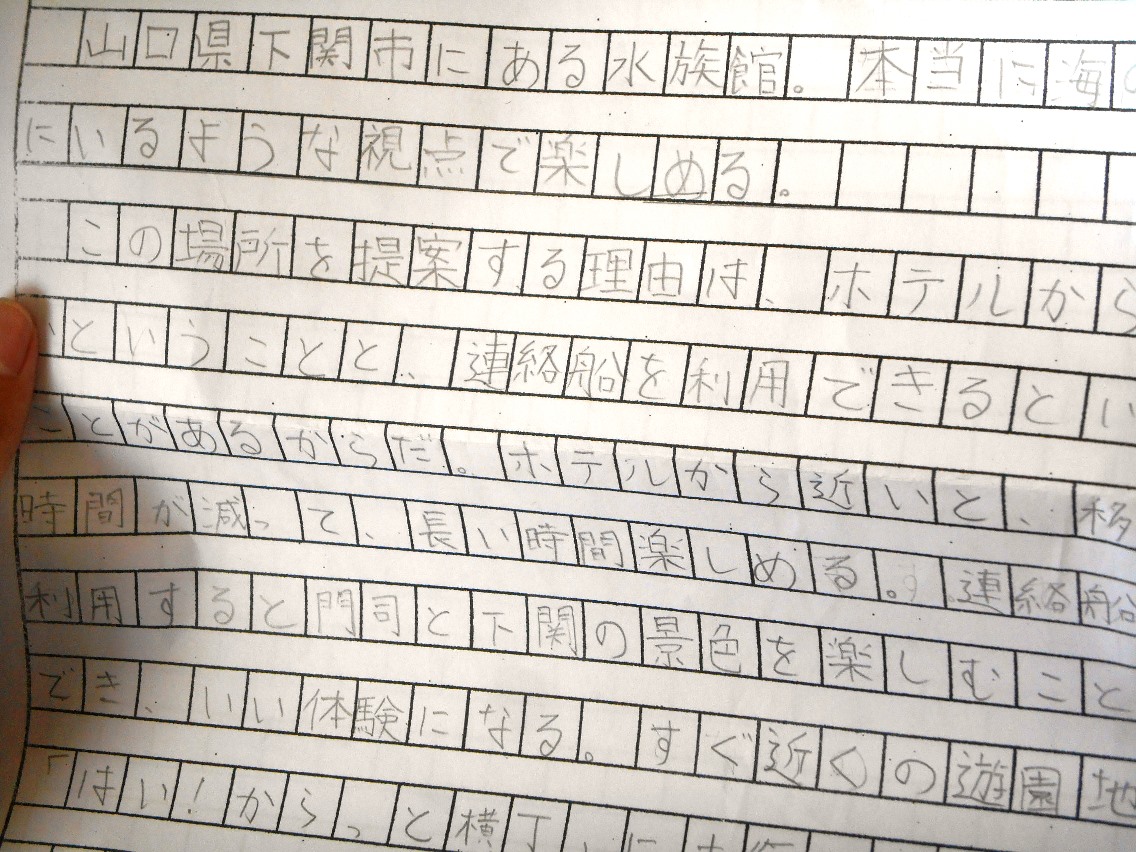 山口県下関市にある水族館。本当に海
にいるような視点で楽しめる。
この場所を提案する理由は、ホテルから
いということと、連絡船を利用できるとい
ことがあるからだ。ホテルから近いと、移
時間が減って、長い時間楽しめる。連絡船
利用すると門司と下関の景色を楽しむこと
でき、いい体験になる。すぐ近くの遊園地
「はい!からっと横丁」に